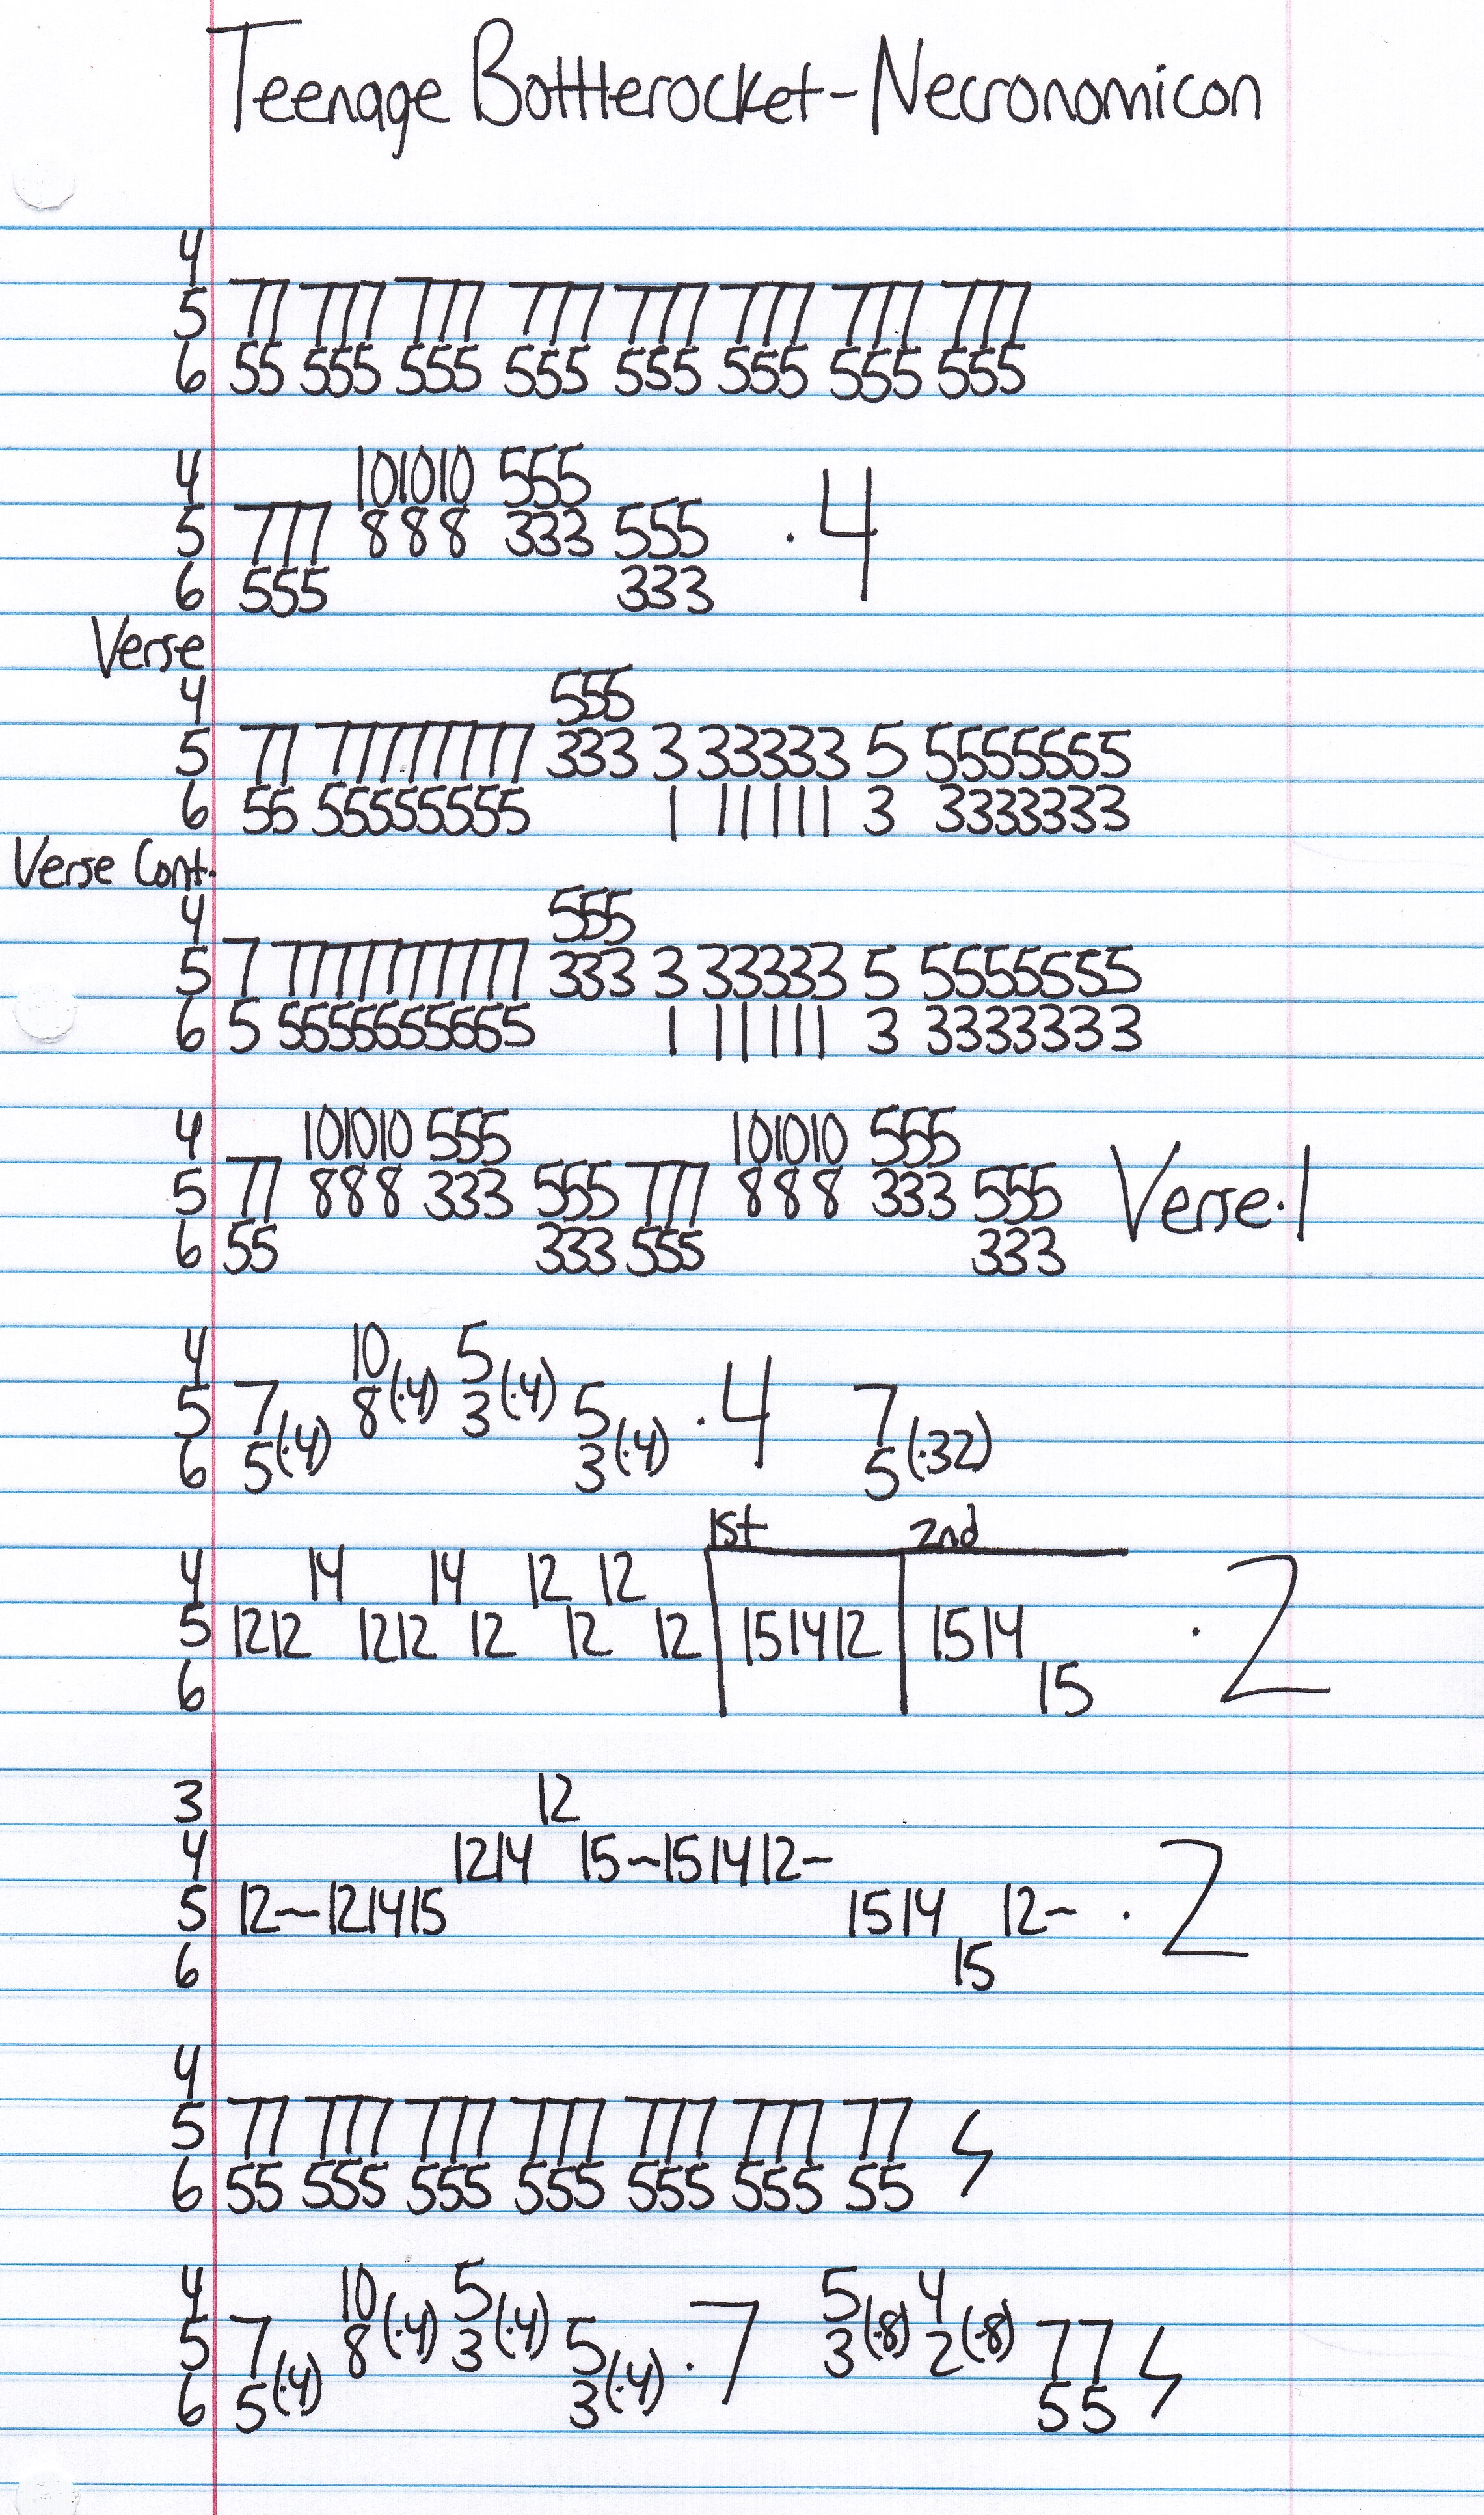 Teenage Bottlerocket - Necronomicon
4
5 77 777 777 777 777 777 777 777
6 55 555 555 555 555 555 555 555
4 101010 555
5 777 888 333 555 · 4
6 555 333
Verse
4 555
5 77 77777777 333 3 33333 5 5555555
6 55 55555555 1 11111 3 3333333
Verse Cont.
4 555
5 7 7777777777 333 3 33333 5 5555555
6 5 5555555555 1 11111 3 3333333
4 101010 555 101010 555
5 77 888 333 555 777 888 333 555 Verse·1
6 55 333 555 333
4 10 5
5 7 8(·4) 3(·4) 5 · 4 7
6 5(·4) 3(·4) 5(·32)
1st 2nd
4 14 14 12 12
5 1212 1212 12 12 12 151412 1514 · 2
6 15
3 12
4 1214 15~151412~
5 12~121415 1514 12~ · 2
6 15
4
5 77 777 777 777 777 777 77
6 55 555 555 555 555 555 55
4 10 5 5 4
5 7 8(·4) 3(·4) 5 · 7 3(·8) 2(·8) 77
6 5(·4) 3(·4) 55